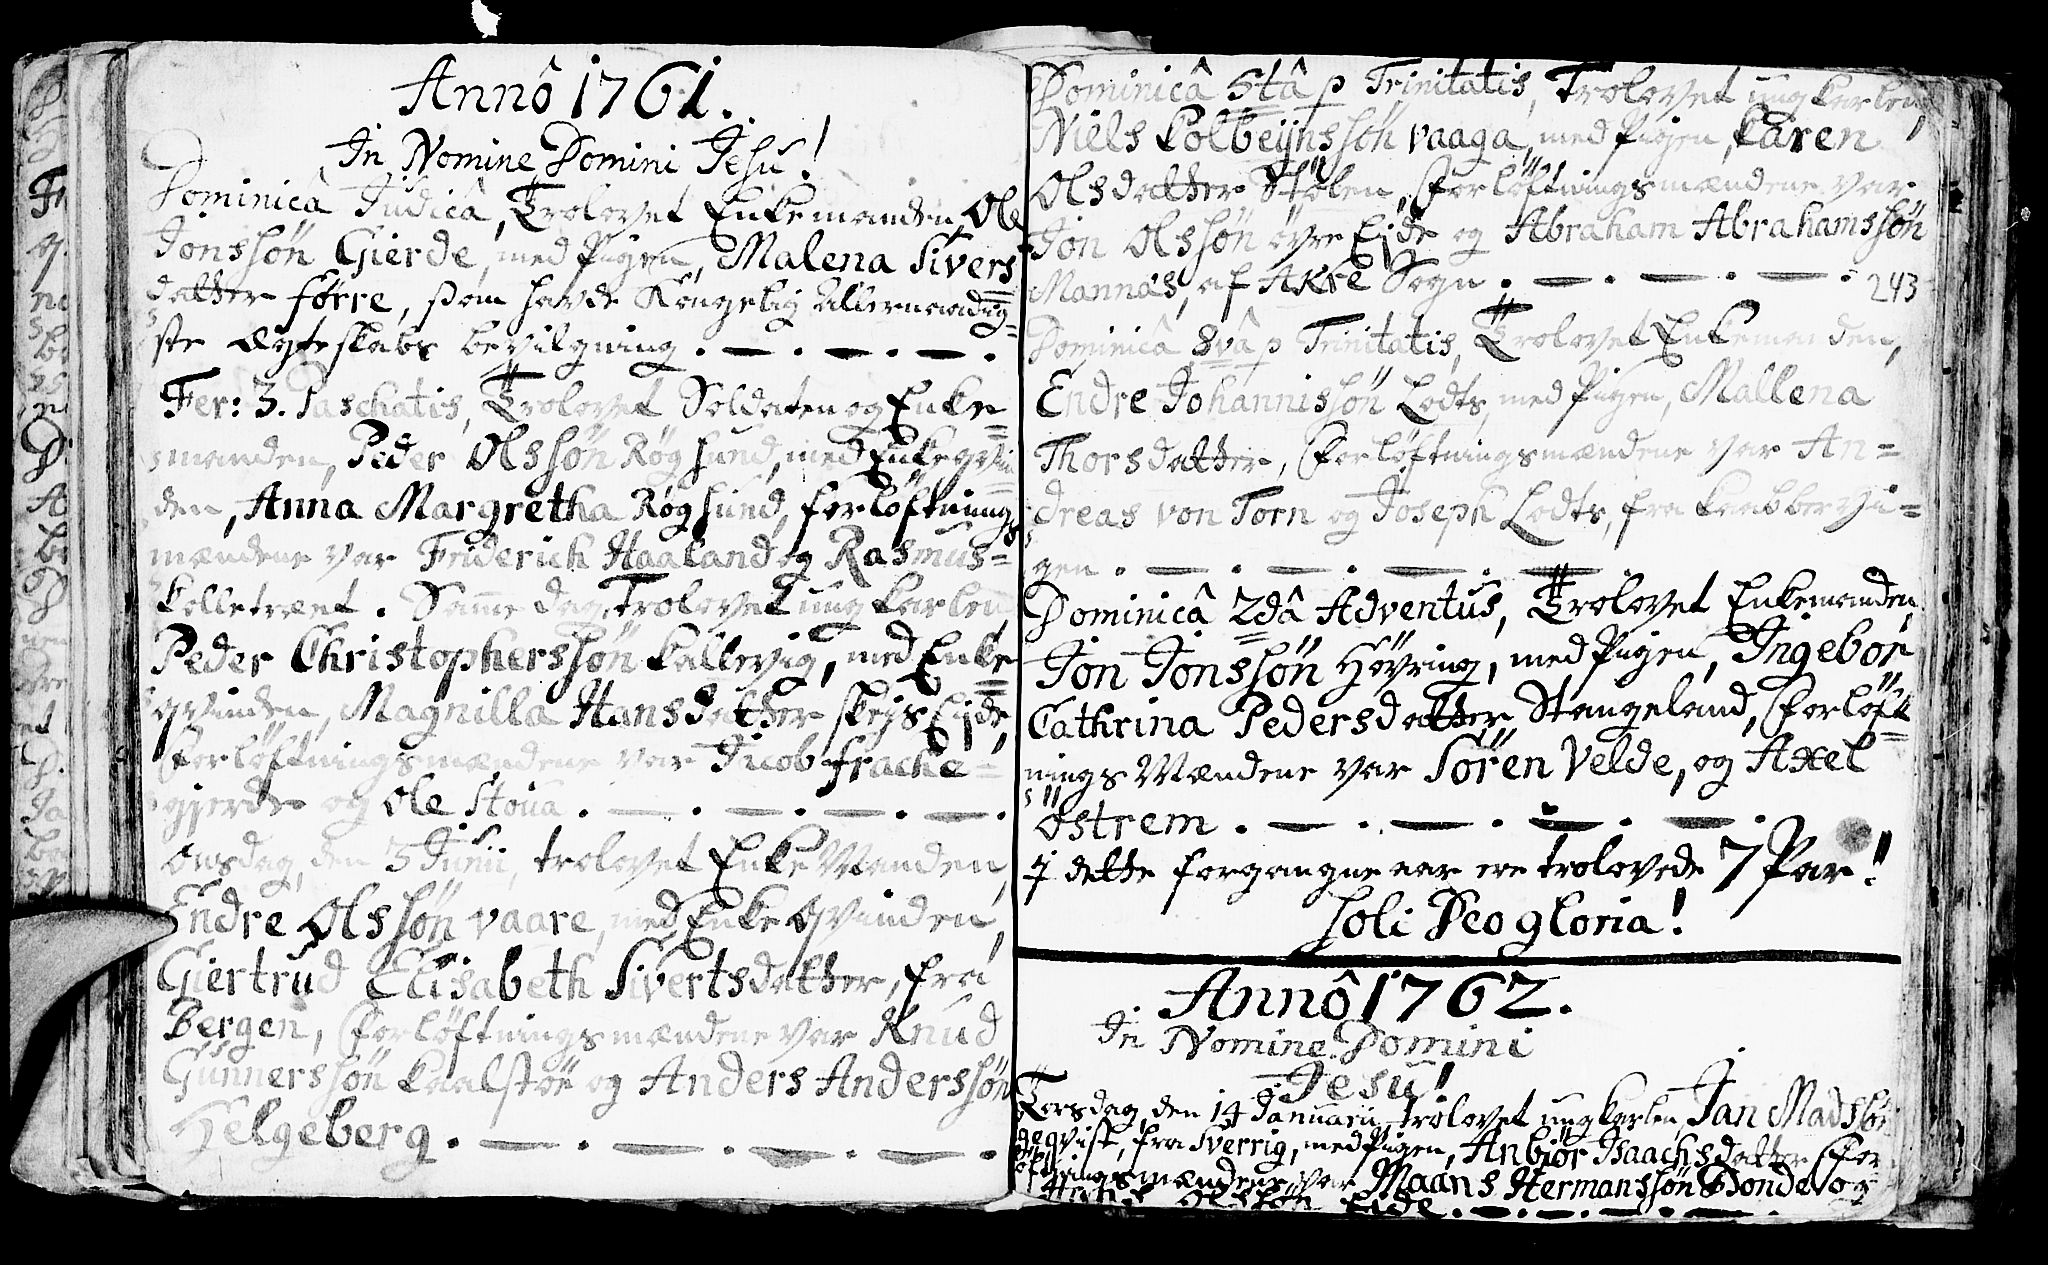 Annô 1761.
In Nomine Domini Jesu!
Dominicâ Judicâ, Trolovet Enkemanden, Ole
Jonssön Gierde, med Pigen, Malena Sivers=
datter förre, som havde Kongelig Allernaadig=
ste Ægteskabs bevilgning.
Fer: 3. Paschatis, Trolovet Soldaten og Enke=
manden, Peder Olssön Røgsund, med Enkeqvin=
den, Anna Margretha Røgsund, forløftnings
mændene var Friderich Haaland og Rasmus=
Kolletræet. Samme dag, Trolovet ungkarlen,
Peder Christopherssøn Kallevig, med Enke=
qvinden, Magnilla Hansdatter, skejs Eide,
forløftningsmændene var Jacob frache=
gjerde og Ole Stoua.
Onsdag, den 3 Junii, trolovet Enkemanden,
Endre Olssön vaare, med Enkeqvinden,
Giertrud Elisabeth Sivertsdatter, fra
Bergen, forløftningsmændene var Knud
Gunnerssön Kaalstöe og Anders Anderssön
Helgeberg.
Dominicâ 5tâ p Trinitatis, Trolovet ungkarlen,
Niels Kolbeijnssön vaaga, med Pigen, Karen
Olsdatter Stölen, forløftningsmændene var
Jon Olssön övre Eide og Abraham Abrahamssön
Mannas, af Akre Sogn. 243
Dominicâ 8vâ p Trinitatis, Trolovet Enkemanden,
Endre Johannissön Lodts, med Pigen, Mallena
Thorsdatter, forløftningsmændene var An=
dreas von Torn og Joseph Lodts, fra Kaabbervi=
gen.
Dominicâ 2dâ Adventus, Trolovet Enkemanden,
Jon Jonssön Hövring, med Pigen, Ingebor
Cathrina Pedersdatter Stangeland, forløft=
nings Mændene var Sören Velde, og Axel
Östrem.
I dette forgangne aar ere trolovede 7 Par!
Soli Deo gloria!
Annô 1762.
In Nomine Domini
Jesu!
Torsdag, den 14 Januarii, trolovet ungkarlen, Jan Madssön
degvist, fra Sverrig, med Pigen, Anbiör Isaachsdatter for
löftningsmændene var Maans Hermanssön Bonde og
Olssön Eide.